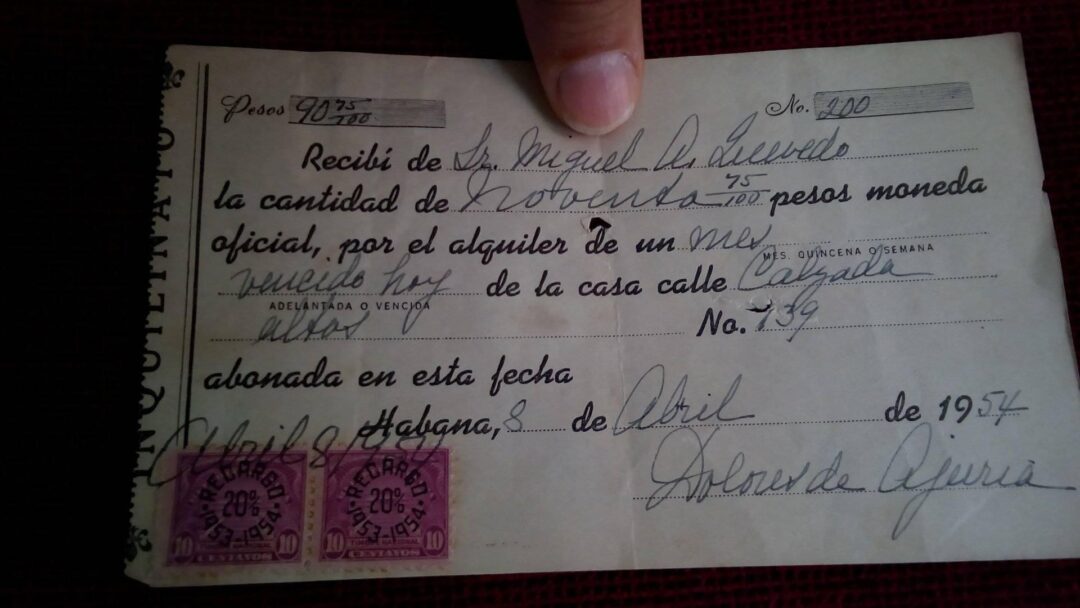 INQUILINATO
Pesos 90 75/100 No. 200
Recibí de Sr. Miguel A. Quevedo
la cantidad de noventa 75/100 pesos moneda
oficial, por el alquiler de un mes
MES, QUINCENA O SEMANA
vencido hoy de la casa calle Calzada
ADELANTADA O VENCIDA
altos No.
abonada en esta fecha
Habana, 8 de Abril de 1954
Abril 8/954
Dolores de Ajuria
RECARGO
20%
1953-1954
TIMBRE NACIONAL
10 CENTAVOS 10
RECARGO
20%
1953-1954
TIMBRE NACIONAL
10 CENTAVOS 10